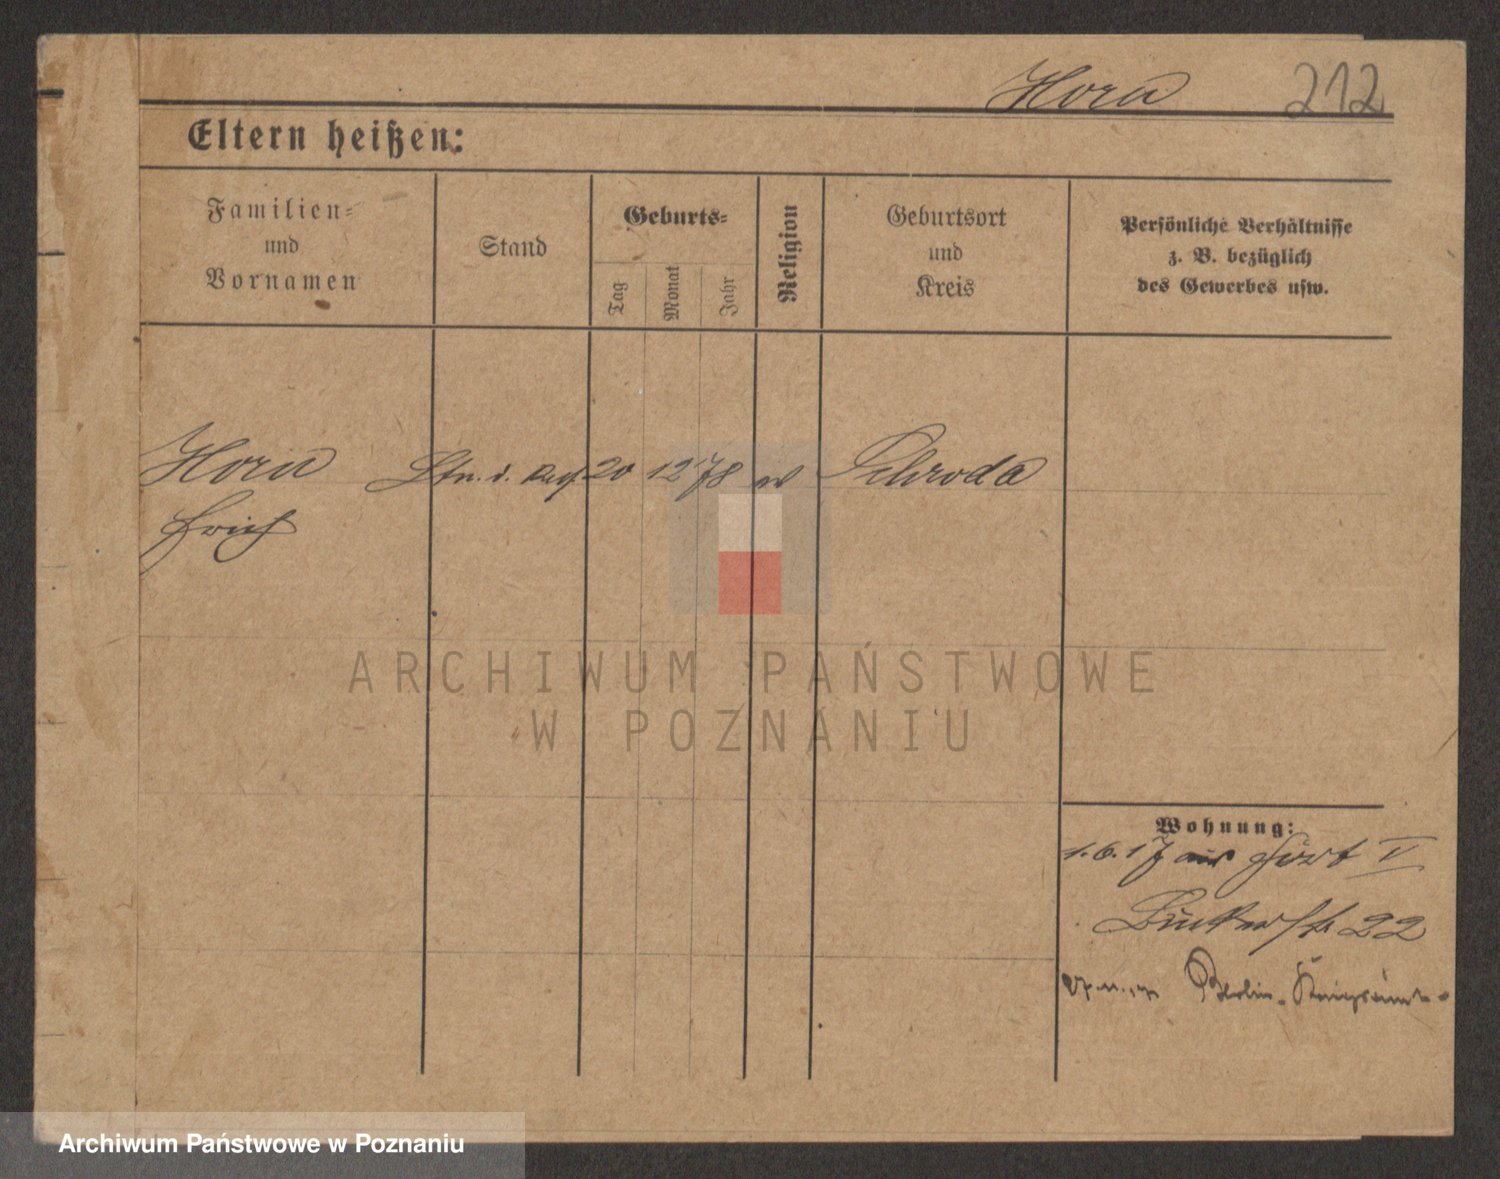 Horn 212
Eltern heißen:
Familien-
und
Vornamen
Stand
Geburts-
Tag
Monat
Jahr
Religion
Geburtsort
und
Kreis
Persönliche Verhältnisse
z. B. bezüglich
des Gewerbes usw.
Horn 20 12 78 Schroda
Erich
ARCHIWUM PAŃSTWOWE
W POZNANIU
Wohnung:
1.6.17 aus Fort V
22
Berlin-
Archiwum Państwowe w Poznaniu